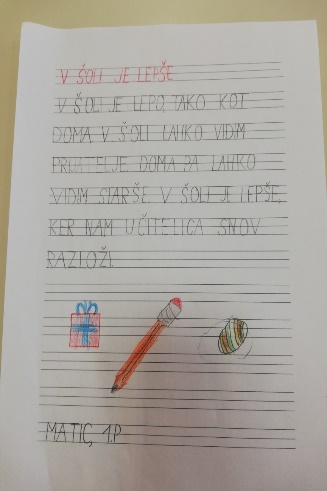 V ŠOLI JE LEPŠE
V ŠOLI JE LEPO, TAKO KOT
DOMA. V ŠOLI LAHKO VIDIM
PRIJATELJE DOMA PA LAHKO
VIDIM STARŠE. V ŠOLI JE LEPŠE,
KER NAM UČITELJICA SNOV
RAZLOŽI.
MATIC, 1.P